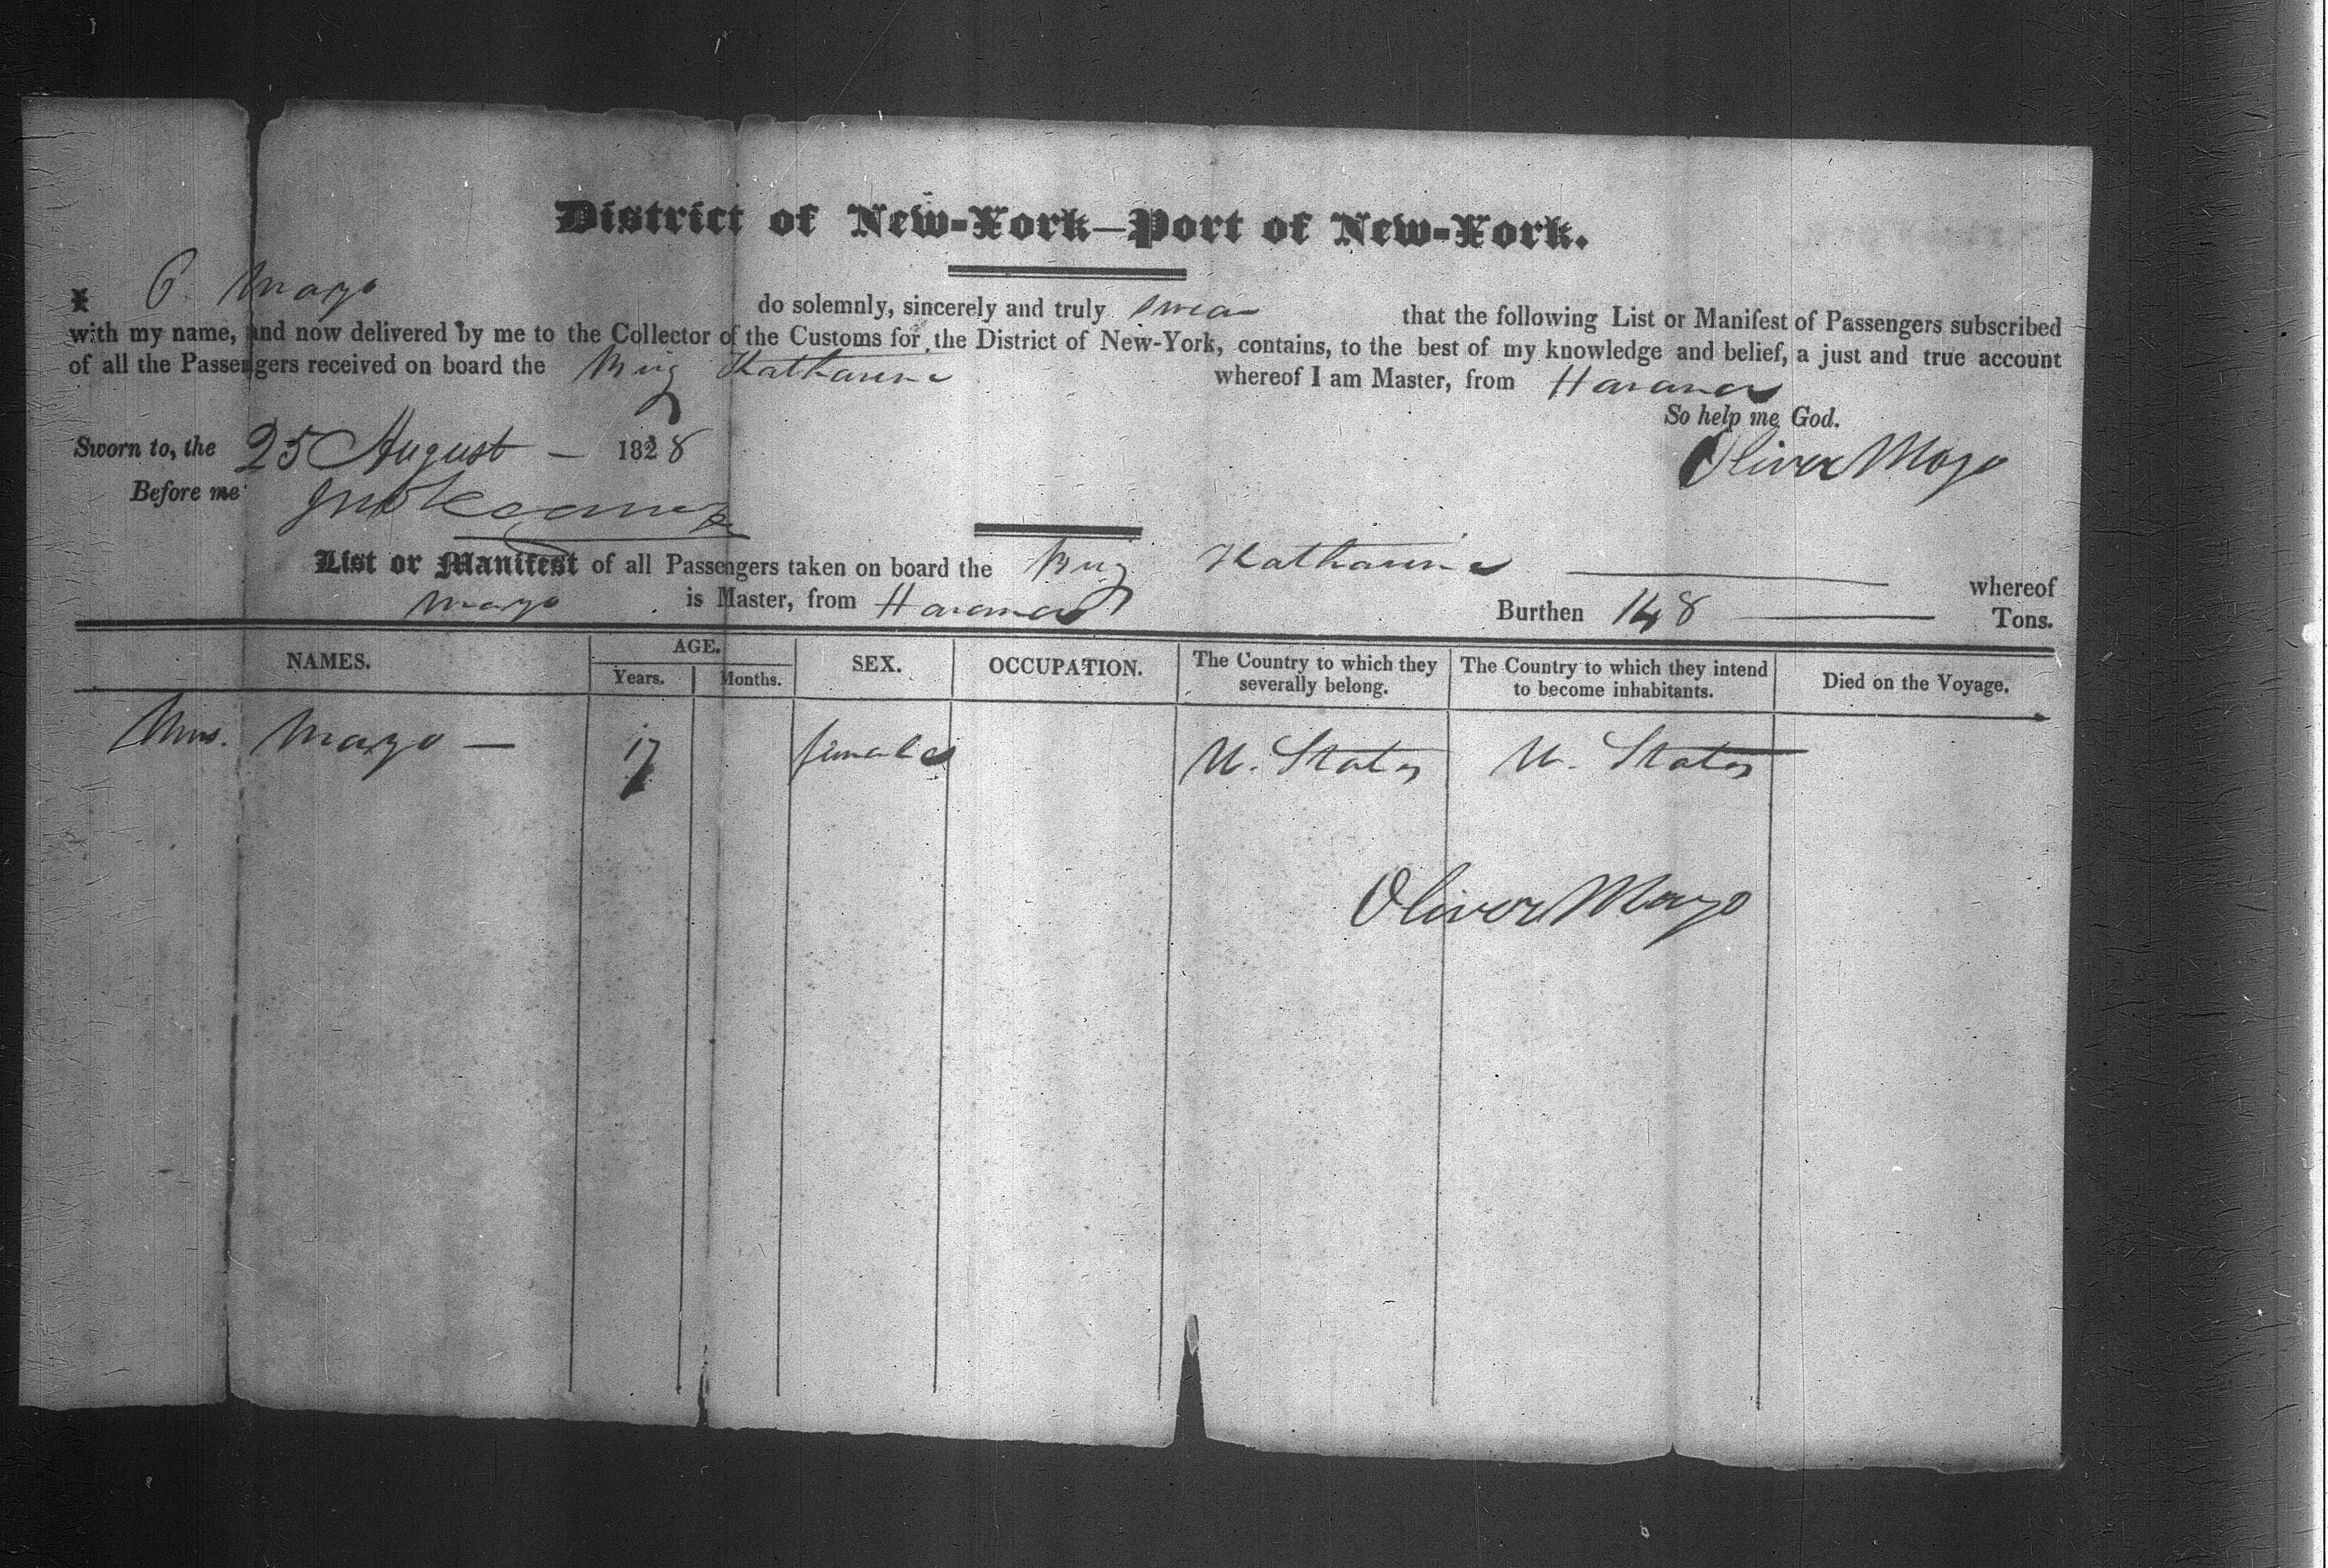 District of New-York—Port of New-York.
I O. Mayo do solemnly, sincerely and truly swear that the following List or Manifest of Passengers subscribed
with my name, and now delivered by me to the Collector of the Customs for the District of New-York, contains, to the best of my knowledge and belief, a just and true account
of all the Passengers received on board the Brig Katharine whereof I am Master, from Havana
So help me God.
Sworn to, the 25 August — 1828 Oliver Mayo
Before me
List or Manifest of all Passengers taken on board the Brig Katharine whereof
Mayo is Master, from Havana Burthen 148 Tons.
NAMES. AGE. Years. Months. SEX. OCCUPATION. The Country to which they severally belong. The Country to which they intend to become inhabitants. Died on the Voyage.
Mrs. Mayo — 17 female U. States U. States
Oliver Mayo